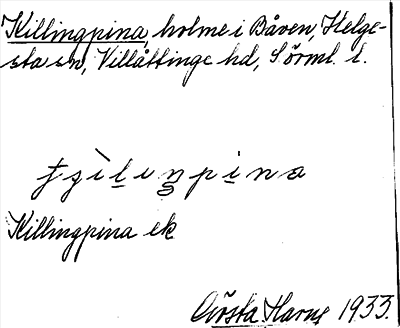 Killingpina, holme i Båven, Helge-
sta sn, Villåttinge hd, Sörml. l.
Killingpina ek
Harus 1933.